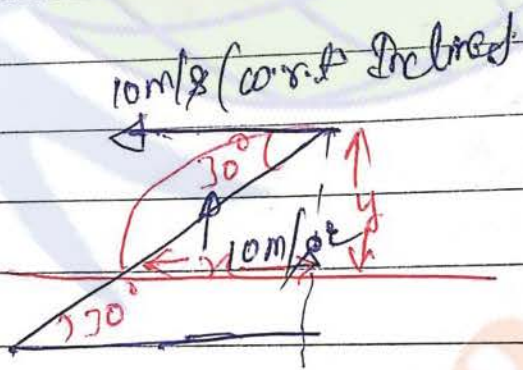 10m/s (w.r.t Inclined
30°
y
x
10m/s
30°